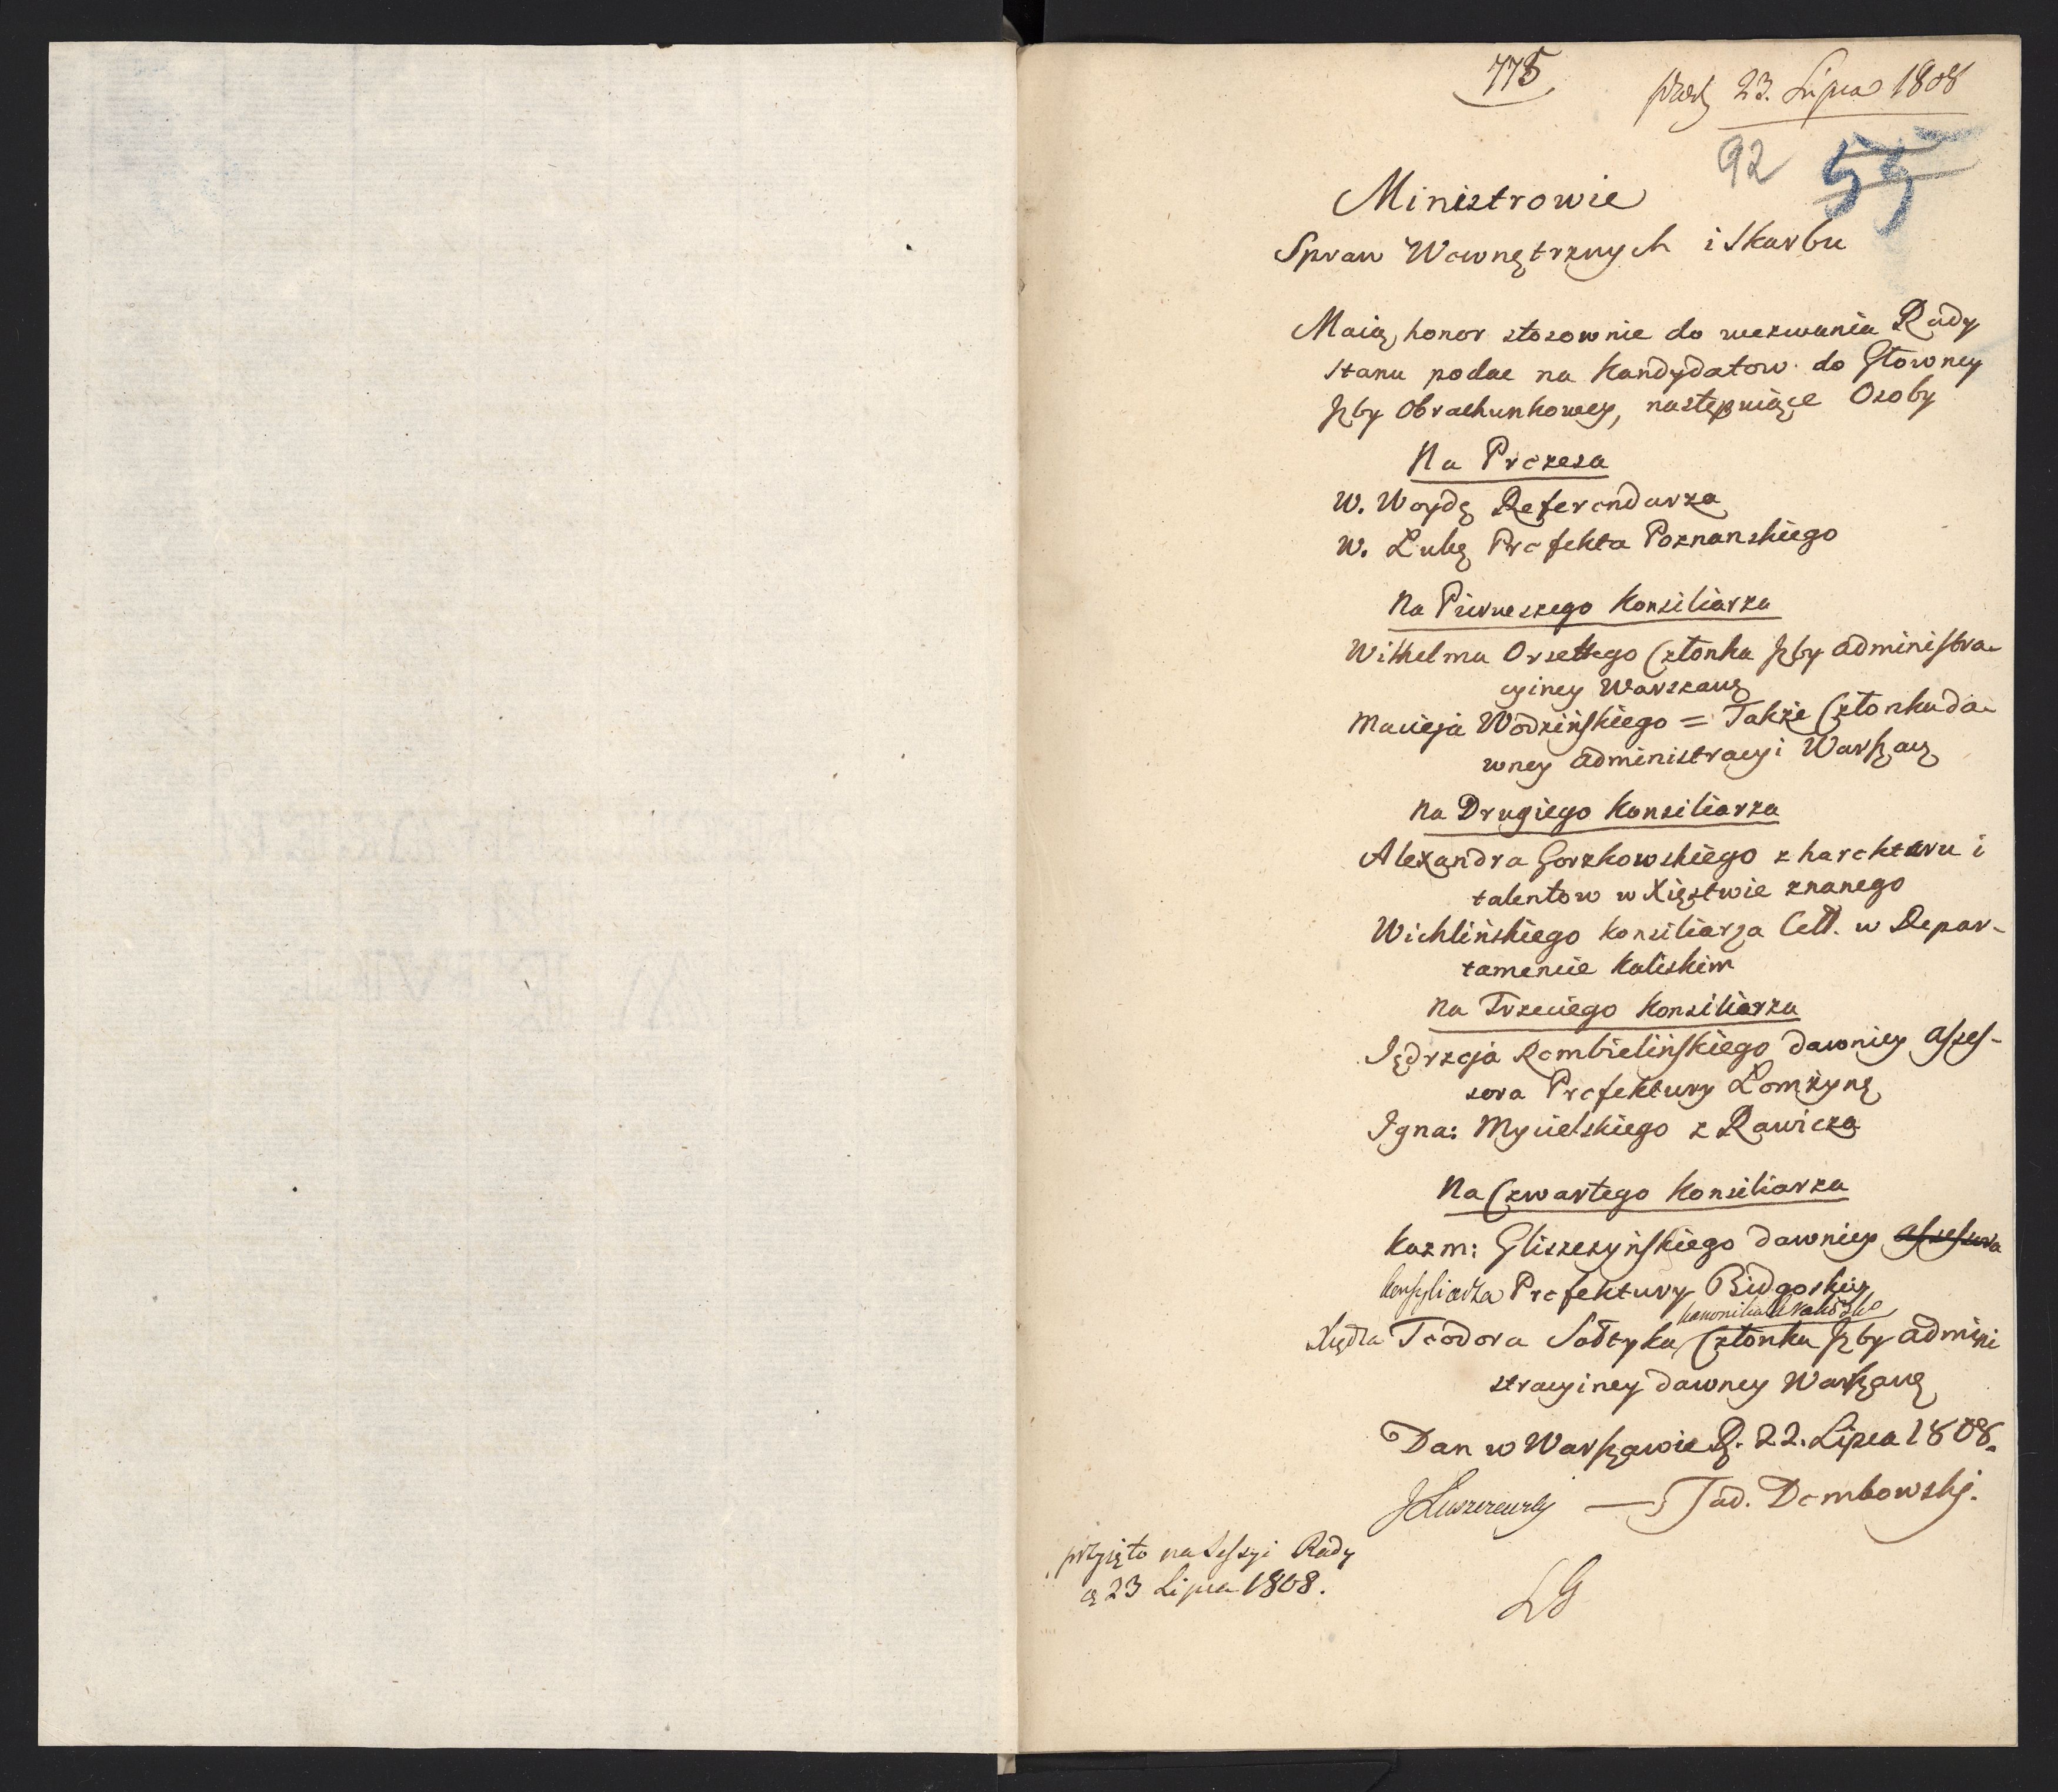 775
prez 23. Lipca 1808
92 55
Ministrowie
Spraw Wewnętrznych i Skarbu
Maią honor stosownie do wezwania Rady
Stanu podać na Kandydatow do Głowney
Jzby Obrachunkowey, następuiące Osoby
Na Prezesa
W. Woydę Referendarza
W. Łubę Prefekta Poznanskiego
Na Pierwszego Konsiliarza
Wilhelma Orsettego Członka Jzby administra-
cyiney Warszaws
Macieja Wodzińskiego = Także Członka da-
wney administracyi Warszaws
Na Drugiego Konsiliarza
Alexandra Gorzkowskiego z harekteru i
talentow w Xięstwie znanego
Wichlińskiego konsiliarza Cell. w Depar-
tamencie Kaliskim
Na Trzeciego Konsiliarza
Jędrzeja Rembielińskiego dawniey asses-
sora Prefektury Łomżyns
Igna: Mycielskiego z Rawicza
Na Czwartego Konsiliarza
Kazm: Gliszczyńskiego dawniey assessora
konsyliarza Prefektury Bidgoskiey
kanonika Krakosko
Xiędza Teodora Sołtyka, Członka Jzby admini
stracyiney dawney Warszaws
Dan w Warszawie D. 22. Lipca 1808.
JŁuszczewsky — Tad. Dembowskj.
przyięto na Sessyi Rady
d 23 Lipca 1808.
LG